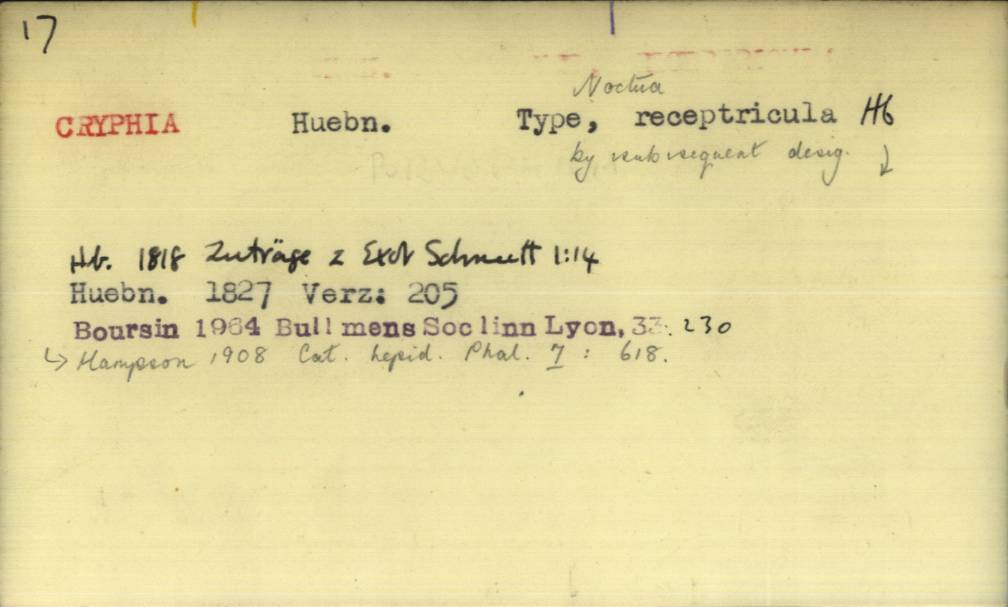 17
Noctua
CRYPHIA Huebn. Type, receptricula Hb
by subsequent desig. ↓
Hb. 1818 Zuträge z Exot Schmett 1:14
Huebn. 1827 Verz: 205
Boursin 1964 Bull mens Soc linn Lyon, 33: 230
↳ Hampson 1908 Cat. Lepid. Phal. 7: 618.